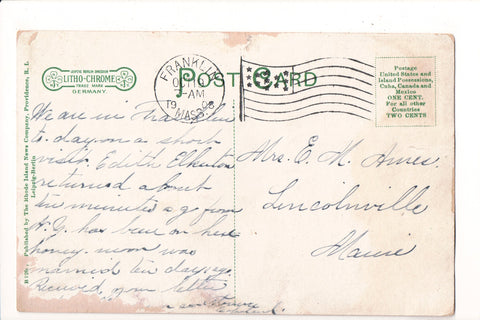 AUCTIC BERLIN DRESDEN
LITHO-CHROME
TRADE MARK
GERMANY.
POST CARD
FRANKLIN
OCT
-AM
19 08
MASS.
Postage
United States and
Island Possessions,
Cuba, Canada and
Mexico
ONE CENT.
For all other
Countries
TWO CENTS
Published by The Rhode Island News Company, Providence, R. I.
Leipzig-Berlin
We are in Franklin
to day on a short
visit. Edith
returned about
ten minutes ago from
N.Y. has been on her
honey-moon was
married ten days ago
Received your letter
Mrs. E. M. Ames
Lincolnville
Maine